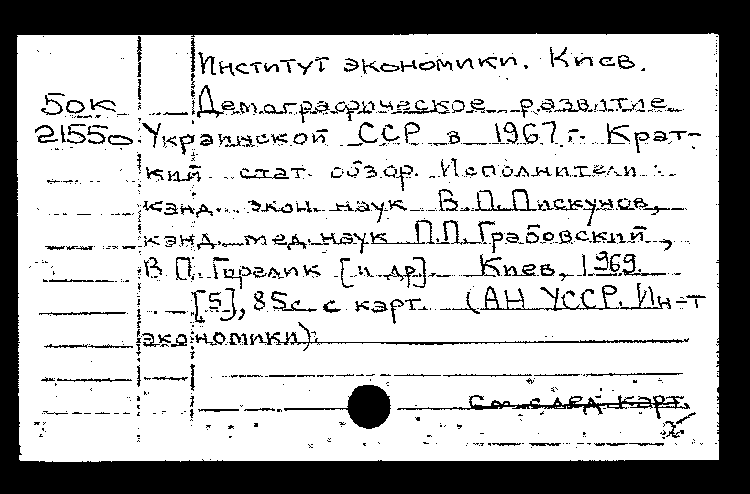 Институт экономики. Киев.
50к Демографическое развитие
21550 Украинской ССР в 1967 г. Крат-
кий стат. обзор. Исполнители:
канд. экон. наук В.П. Пискунов,
канд. мед. наук П.П. Грабовский,
В.П. Горелик [и др]. Киев, 1969.
[5], 85с. с карт. (АН УССР. Ин-т
экономики).
См след карт.